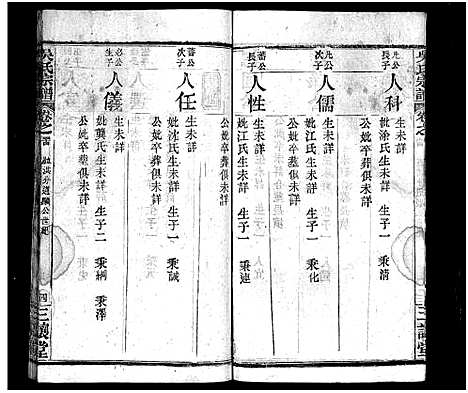 吳氏宗譜
卷之
三讓堂
允公長子
人科
生未詳
妣涂氏生未詳 生子一 秉清
公妣卒葬俱未詳
允公次子
人儒
生未詳
妣江氏生未詳 生子一 秉化
公妣卒葬俱未詳
蕃公長子
人性
生未詳
妣江氏生未詳 生子一 秉連
公妣卒葬俱未詳
蕃公次子
人任
生未詳
妣沈氏生未詳 生子一 秉誠
公妣卒葬俱未詳
必公生子
人儀
生未詳
妣龔氏生未詳 生子二 秉綱 秉澤
公妣卒葬俱未詳
吳氏宗譜
卷之
公世紀
四
三讓堂